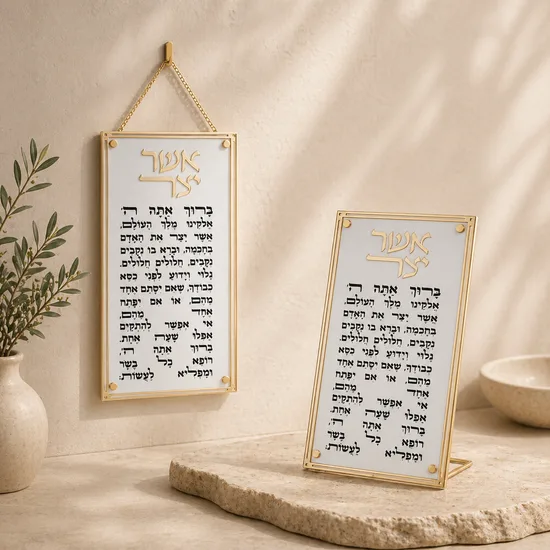 אשר
יצר
בָּרוּךְ אַתָּה ה׳
אלקינו מלך העולם,
אשר יצר את האדם
בחכמה, וברא בו נקבים
נקבים, חלולים חלולים,
גלוי וידוע לפני כסא
כבודך, שאם יסתם אחד
מהם, או אם יפתח
אחד מהם,
אי אפשר להתקים
אפלו שעה אחת.
ברוך אתה ה׳,
רופא כל בשר
ומפליא לעשות:
אשר
יצר
בָּרוּךְ אַתָּה ה׳
אלקינו מלך העולם,
אשר יצר את האדם
בחכמה, וברא בו נקבים
נקבים, חלולים חלולים,
גלוי וידוע לפני כסא
כבודך, שאם יסתם אחד
מהם, או אם יפתח
אחד מהם,
אי אפשר להתקים
אפלו שעה אחת.
ברוך אתה ה׳,
רופא כל בשר
ומפליא לעשות: